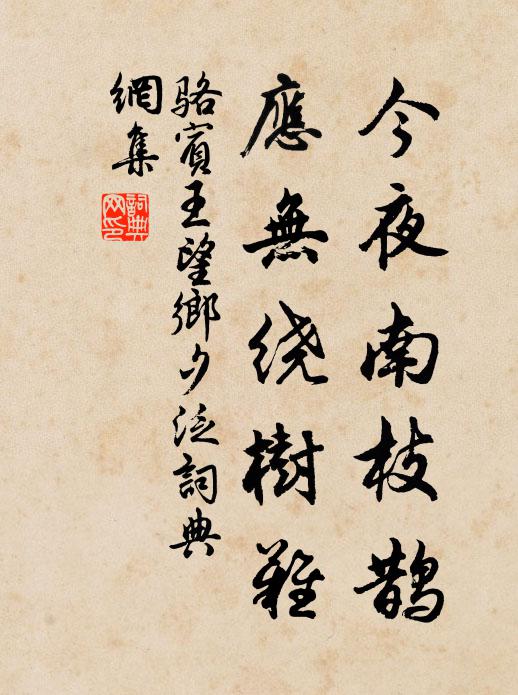 今夜南枝鵲
應無绕樹難
骆賓王望鄉夕泛詞典
網集
詞典
网印